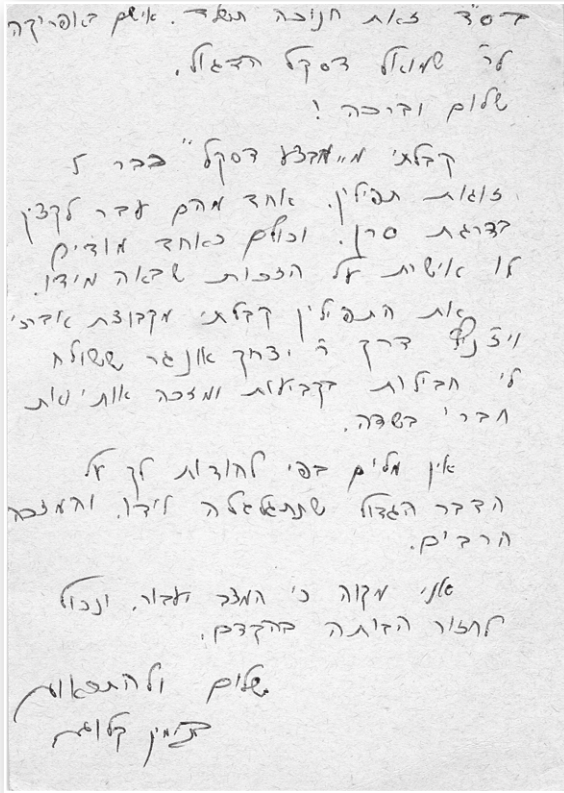 בס"ד זאת חנוכה תשל"ד. אי שם באפריקה
לר' שמואל דסקל הדגול,
שלום וברכה!
קבלתי מ"מבצע דסקל" כבר 2
זוגות תפילין. אחד מהם עבר לקצין
בדרגת סרן. וכולם כאחד מודים
לו אישית על הזכות שבאה מידו.
את התפילין קבלתי מקבוצת אברכי
ויז'ניץ דרך ר' יצחק אונגר ששולח
לי חבילות בקביעות ומזכה אותי ואת
חברי בשדה.
אין מלים בפי להודות לך על
הדבר הגדול שתתגלגלה לידו. והמזכה
הרבים.
אני מקוה כי המצב יעבור, ונכול
לחזור הביתה בהקדם.
שלום ולהתראות